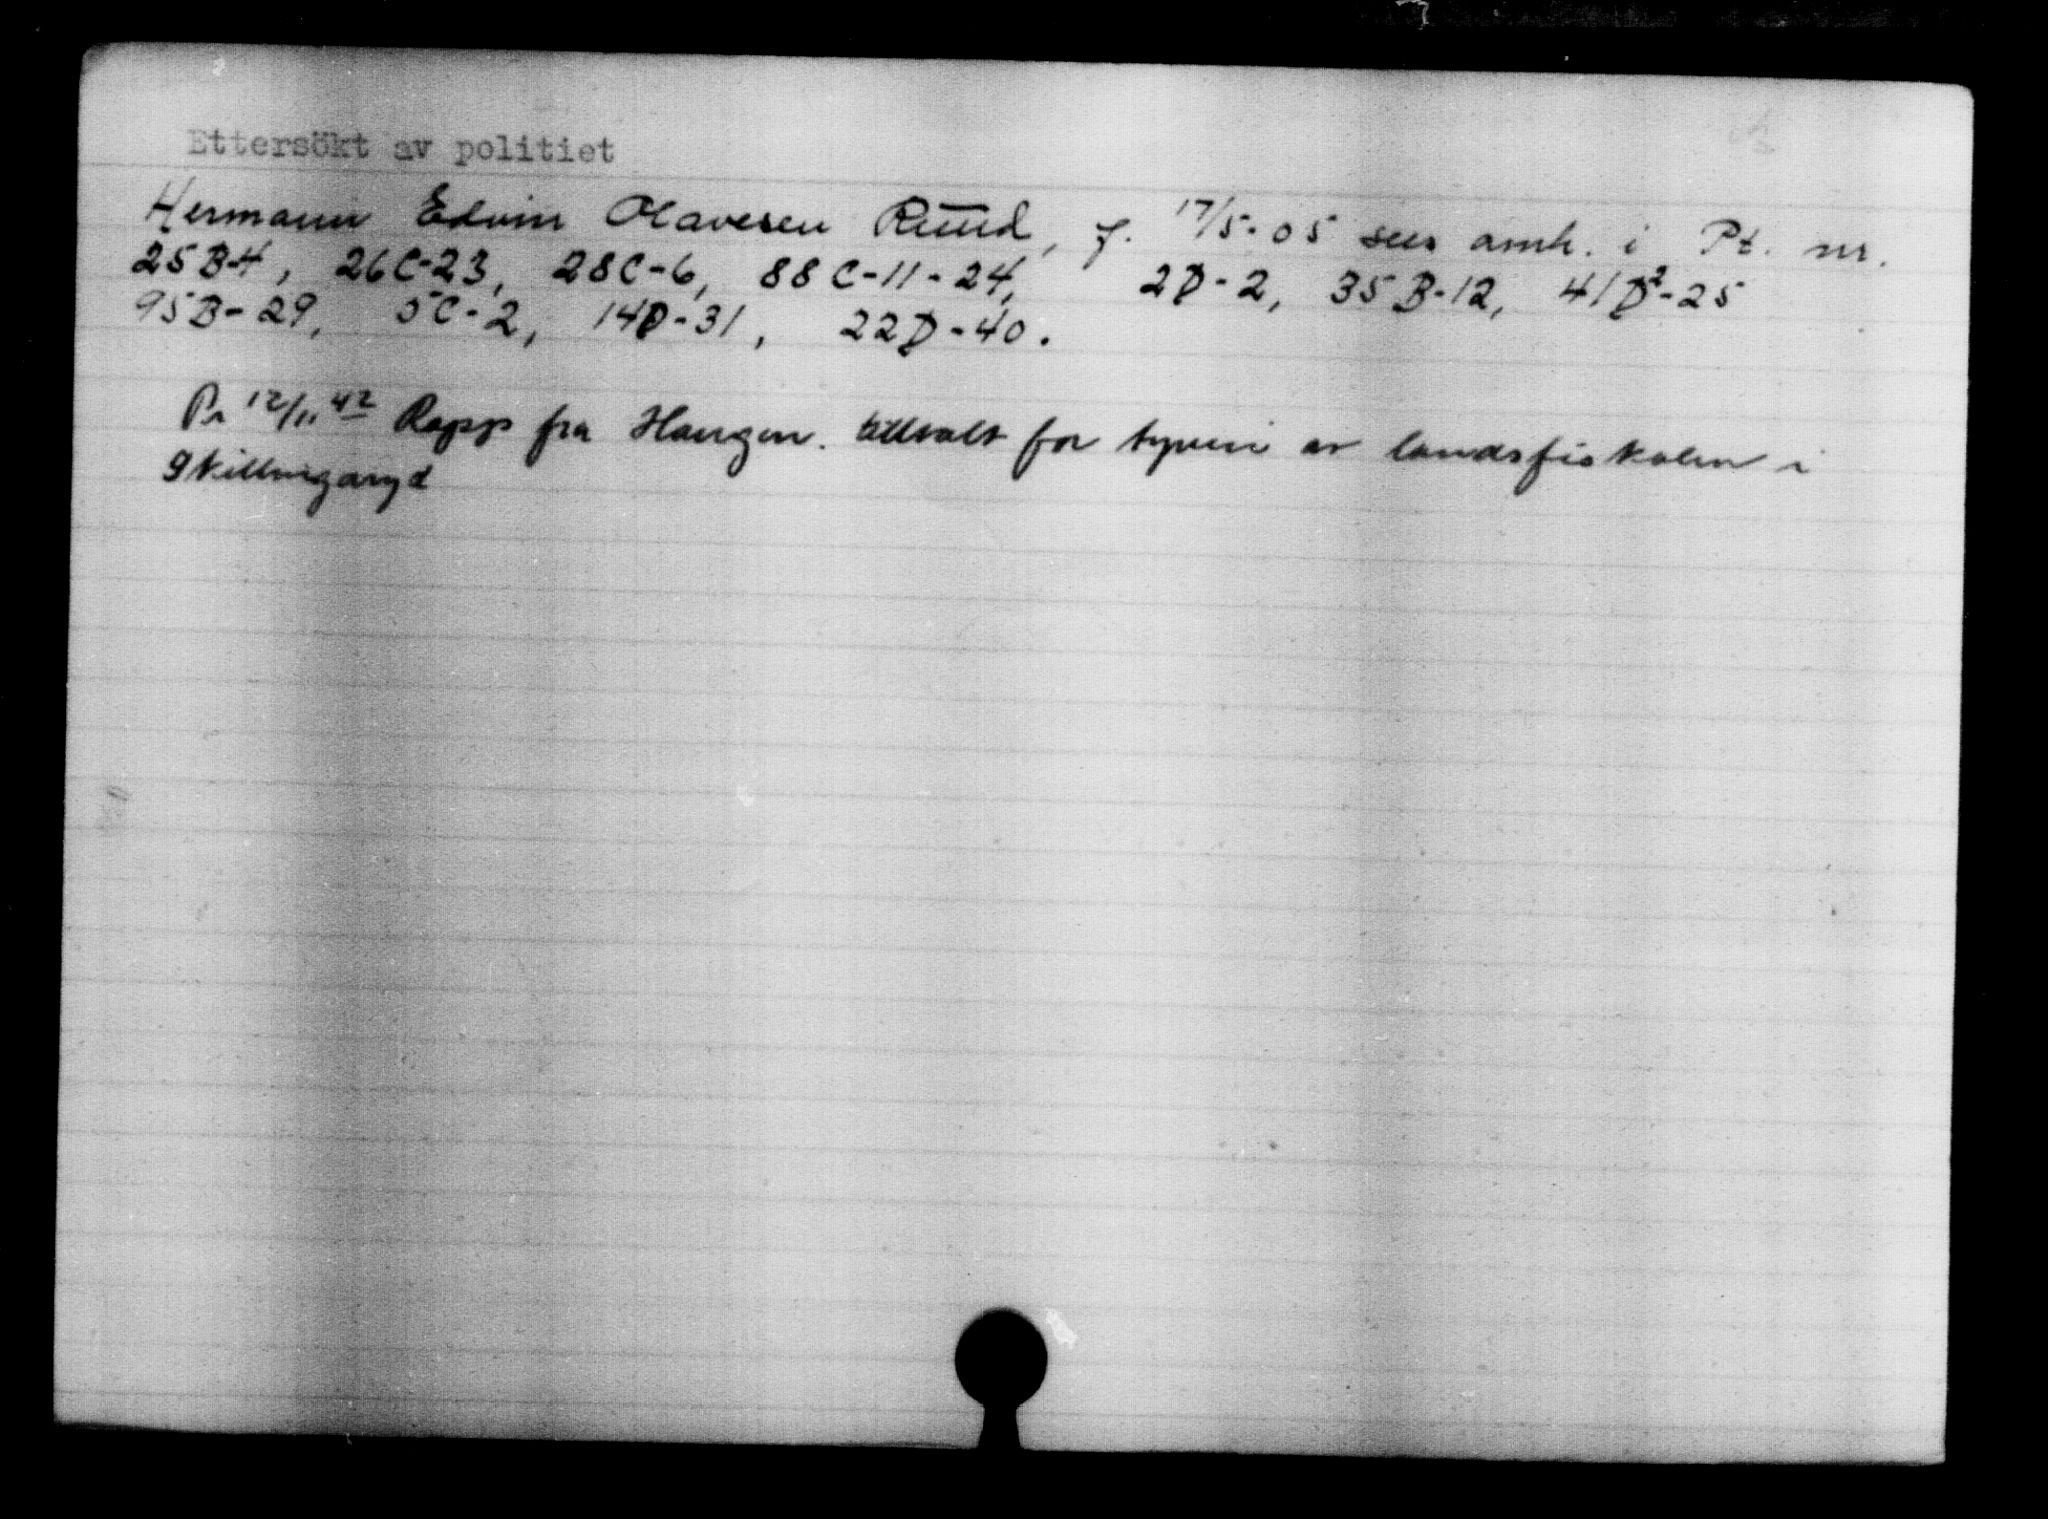 Ettersökt av politiet
Hermann Edvin Olavesen Ruud, f. 17/5-05 sees anh. i Pt. nr.
25B-4, 26C-23, 28C-6, 88C-11-24, 2D-2, 35B-12, 41D²-25
95B-29, 5C-2, 14D-31, 22D-40.
Pr 12/11 42 Rapp fra Haugen. tiltalt for tyveri av landsfiskalen i
Skillingaryd